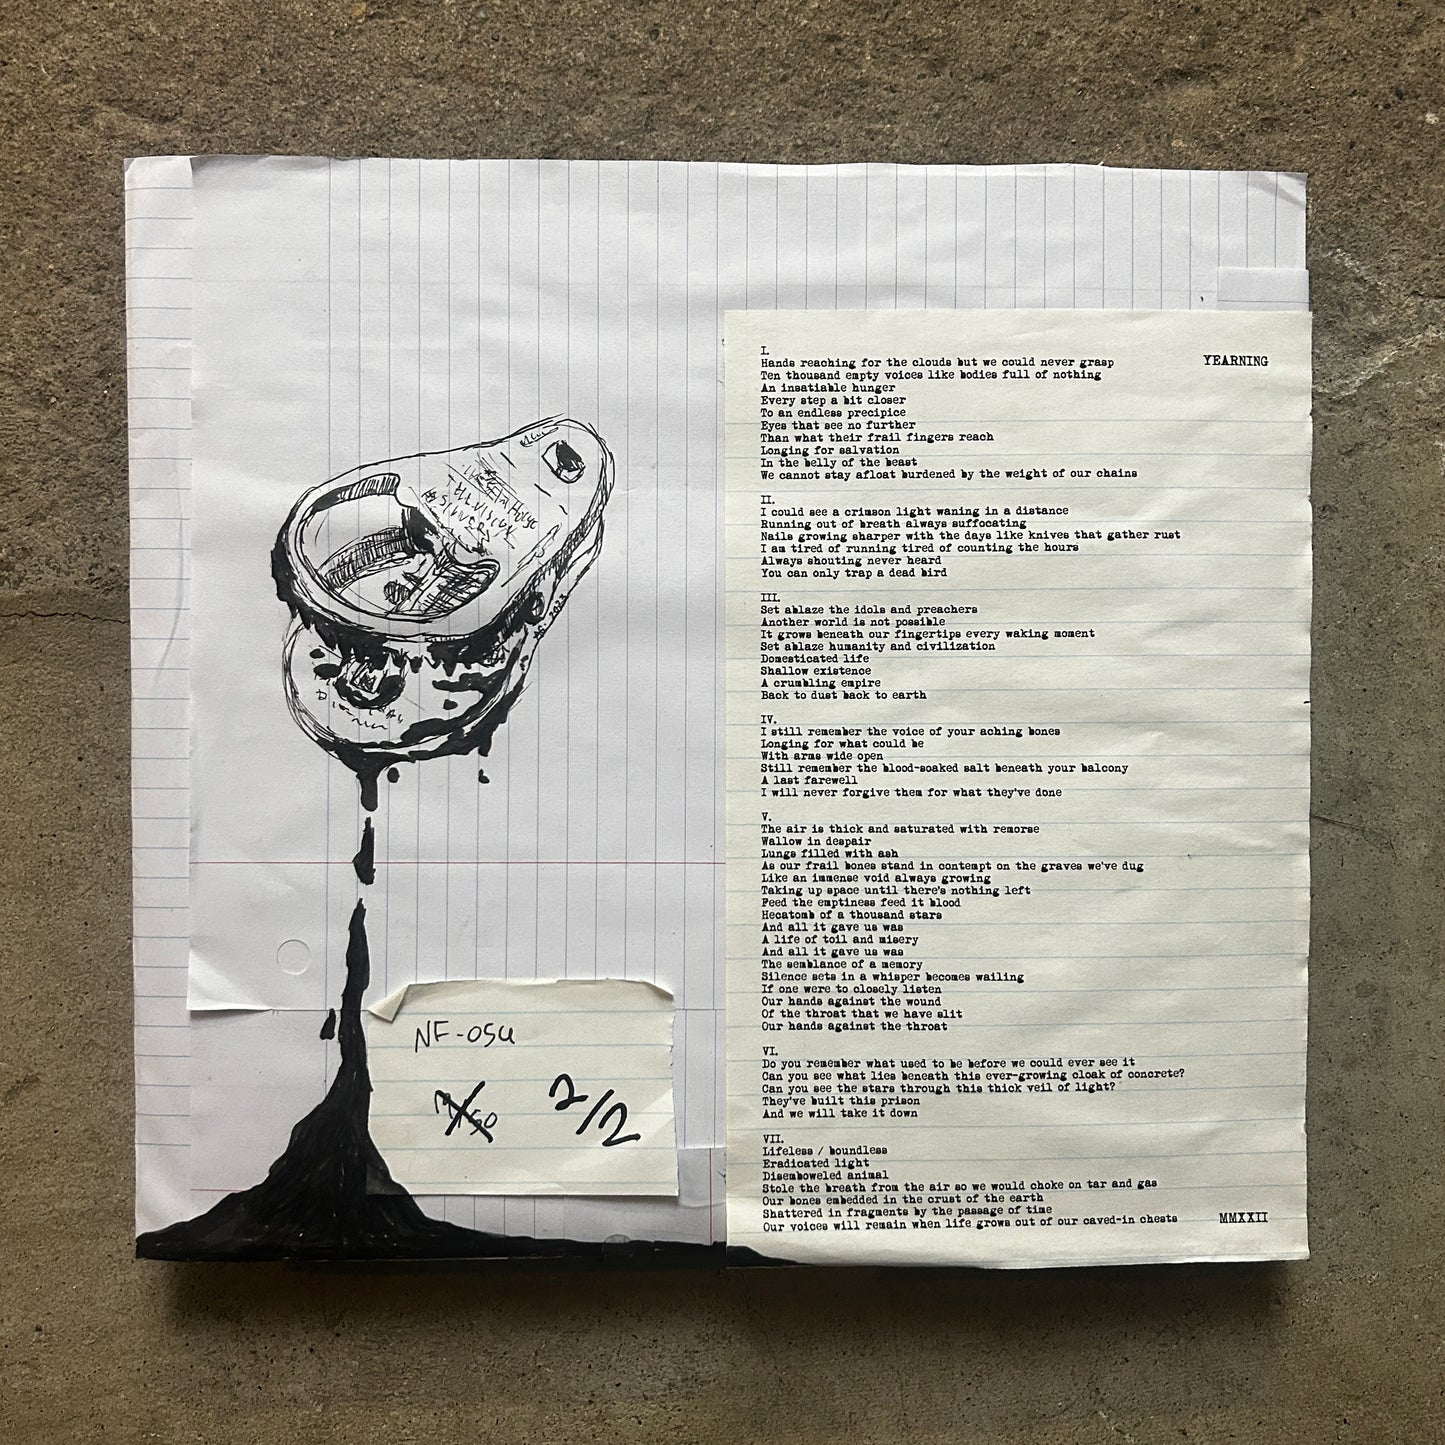 TELEVISION
SILVER
AG. 2023
NF-OSU
2/2
YEARNING
I.
Hands reaching for the clouds but we could never grasp
Ten thousand empty voices like bodies full of nothing
An insatiable hunger
Every step a bit closer
To an endless precipice
Eyes that see no further
Than what their frail fingers reach
Longing for salvation
In the belly of the beast
We cannot stay afloat burdened by the weight of our chains
II.
I could see a crimson light waning in a distance
Running out of breath always suffocating
Nails growing sharper with the days like knives that gather rust
I am tired of running tired of counting the hours
Always shouting never heard
You can only trap a dead bird
III.
Set ablaze the idols and preachers
Another world is not possible
It grows beneath our fingertips every waking moment
Set ablaze humanity and civilization
Domesticated life
Shallow existence
A crumbling empire
Back to dust back to earth
IV.
I still remember the voice of your aching bones
Longing for what could be
With arms wide open
Still remember the blood-soaked salt beneath your balcony
A last farewell
I will never forgive them for what they've done
V.
The air is thick and saturated with remorse
Wallow in despair
Lungs filled with ash
As our frail bones stand in contempt on the graves we've dug
Like an immense void always growing
Taking up space until there's nothing left
Feed the emptiness feed it blood
Hecatomb of a thousand stars
And all it gave us was
A life of toil and misery
And all it gave us was
The semblance of a memory
Silence sets in a whisper becomes wailing
If one were to closely listen
Our hands against the wound
Of the throat that we have slit
Our hands against the throat
VI.
Do you remember what used to be before we could ever see it
Can you see what lies beneath this ever-growing cloak of concrete?
Can you see the stars through this thick veil of light?
They've built this prison
And we will take it down
VII.
Lifeless / boundless
Eradicated light
Disemboweled animal
Stole the breath from the air so we would choke on tar and gas
Our bones embedded in the crust of the earth
Shattered in fragments by the passage of time
Our voices will remain when life grows out of our caved-in chests
MMXXII